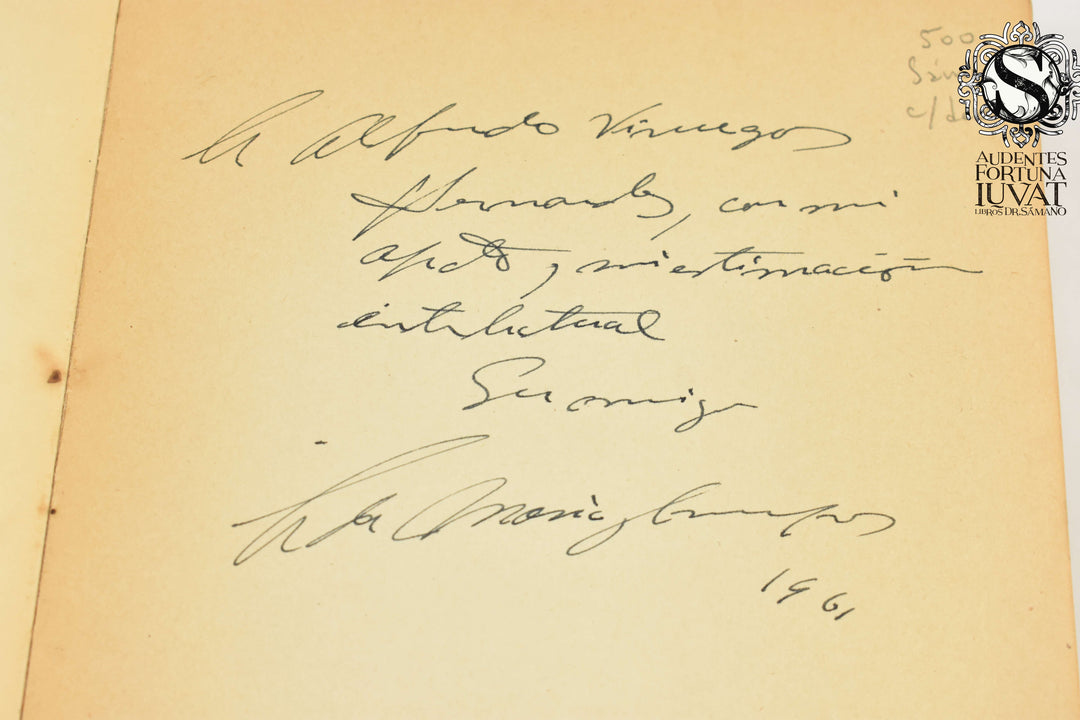 A Alfredo Viruegas
Hernandez, con mi
afecto y mi estimación
intelectual
Su amigo
María y Campos
1961
500
c/
S
AUDENTES
FORTUNA
IUVAT
LIBROS DR. SÁMANO